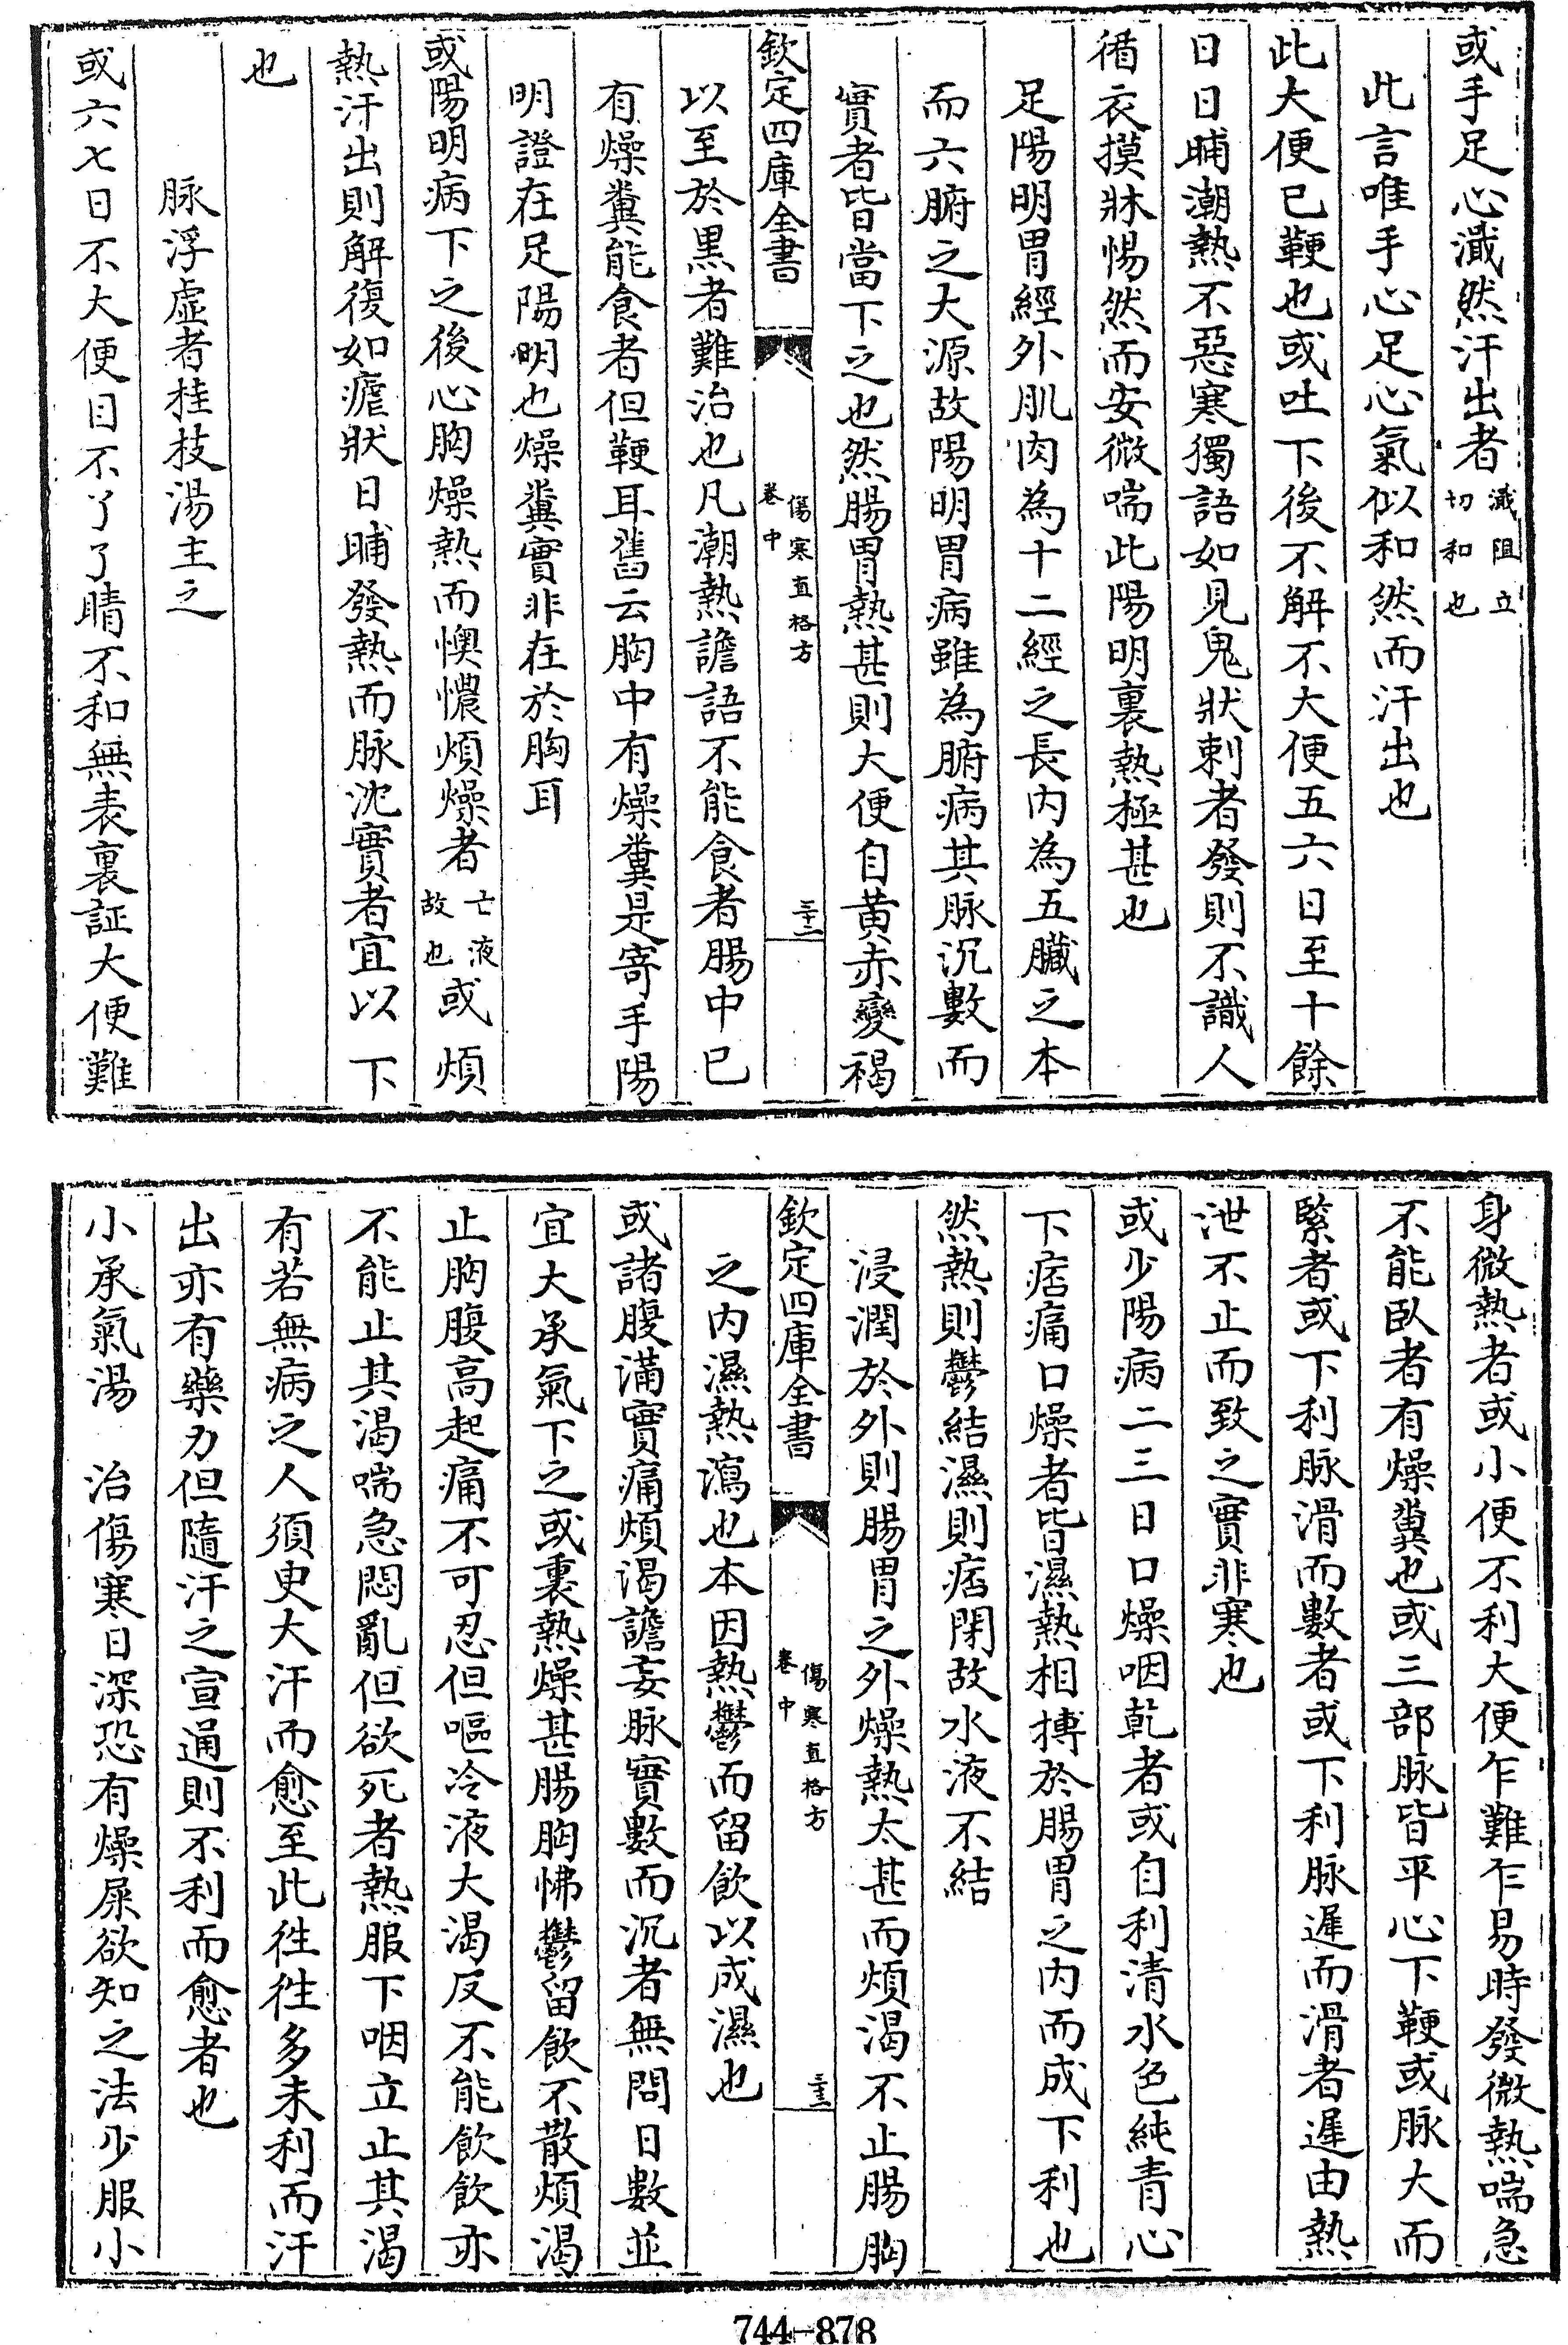 或手足心濈然汗出者濈阻立切和也
此言唯手心足心氣似和然而汗出也
此大便已鞕也或吐下後不解不大便五六日至十餘
日日晡潮熱不惡寒獨語如見鬼狀剌者發則不識人
循衣摸牀惕然而安微喘此陽明裏熱極甚也
足陽明胃經外肌肉為十二經之長内為五臟之本
而六腑之大源故陽明胃病雖為腑病其脉沉數而
實者皆當下之也然腸胃熱甚則大便自黄赤變褐
欽定四庫全書
傷寒直格方
卷中
三十二
以至於黒者難治也凡潮熱譫語不能食者腸中已
有燥糞能食者但鞕耳舊云胸中有燥糞是寄手陽
明證在足陽明也燥糞實非在於胸耳
或陽明病下之後心胸燥熱而懊憹煩燥者亡液故也或煩
熱汗出則解復如瘧狀日晡發熱而脉沈實者宜以下
也
脉浮虚者桂枝湯主之
或六七日不大便目不了了睛不和無表裏証大便難
身微熱者或小便不利大便乍難乍易時發微熱喘急
不能臥者有燥糞也或三部脉皆平心下鞕或脉大而
緊者或下利脉滑而數者或下利脉遲而滑者遲由熱
泄不止而致之實非寒也
或少陽病二三日口燥咽乾者或自利清水色純青心
下痞痛口燥者皆濕熱相搏於腸胃之内而成下利也
然熱則鬱結濕則痞閉故水液不結
浸潤於外則腸胃之外燥熱太甚而煩渴不止腸胸
欽定四庫全書
傷寒直格方
卷中
三十三
之内濕熱瀉也本因熱鬱而留飲以成濕也
或諸腹滿實痛煩渴譫妄脉實數而沉者無問日數並
宜大承氣下之或裏熱燥甚腸胸怫鬱留飲不散煩渴
止胸腹高起痛不可忍但嘔冷液大渴反不能飲飲亦
不能止其渴喘急悶亂但欲死者熱服下咽立止其渴
有若無病之人須臾大汗而愈至此徃徃多未利而汗
出亦有藥力但隨汗之宣通則不利而愈者也
小承氣湯　治傷寒日深恐有燥屎欲知之法少服小
744-878